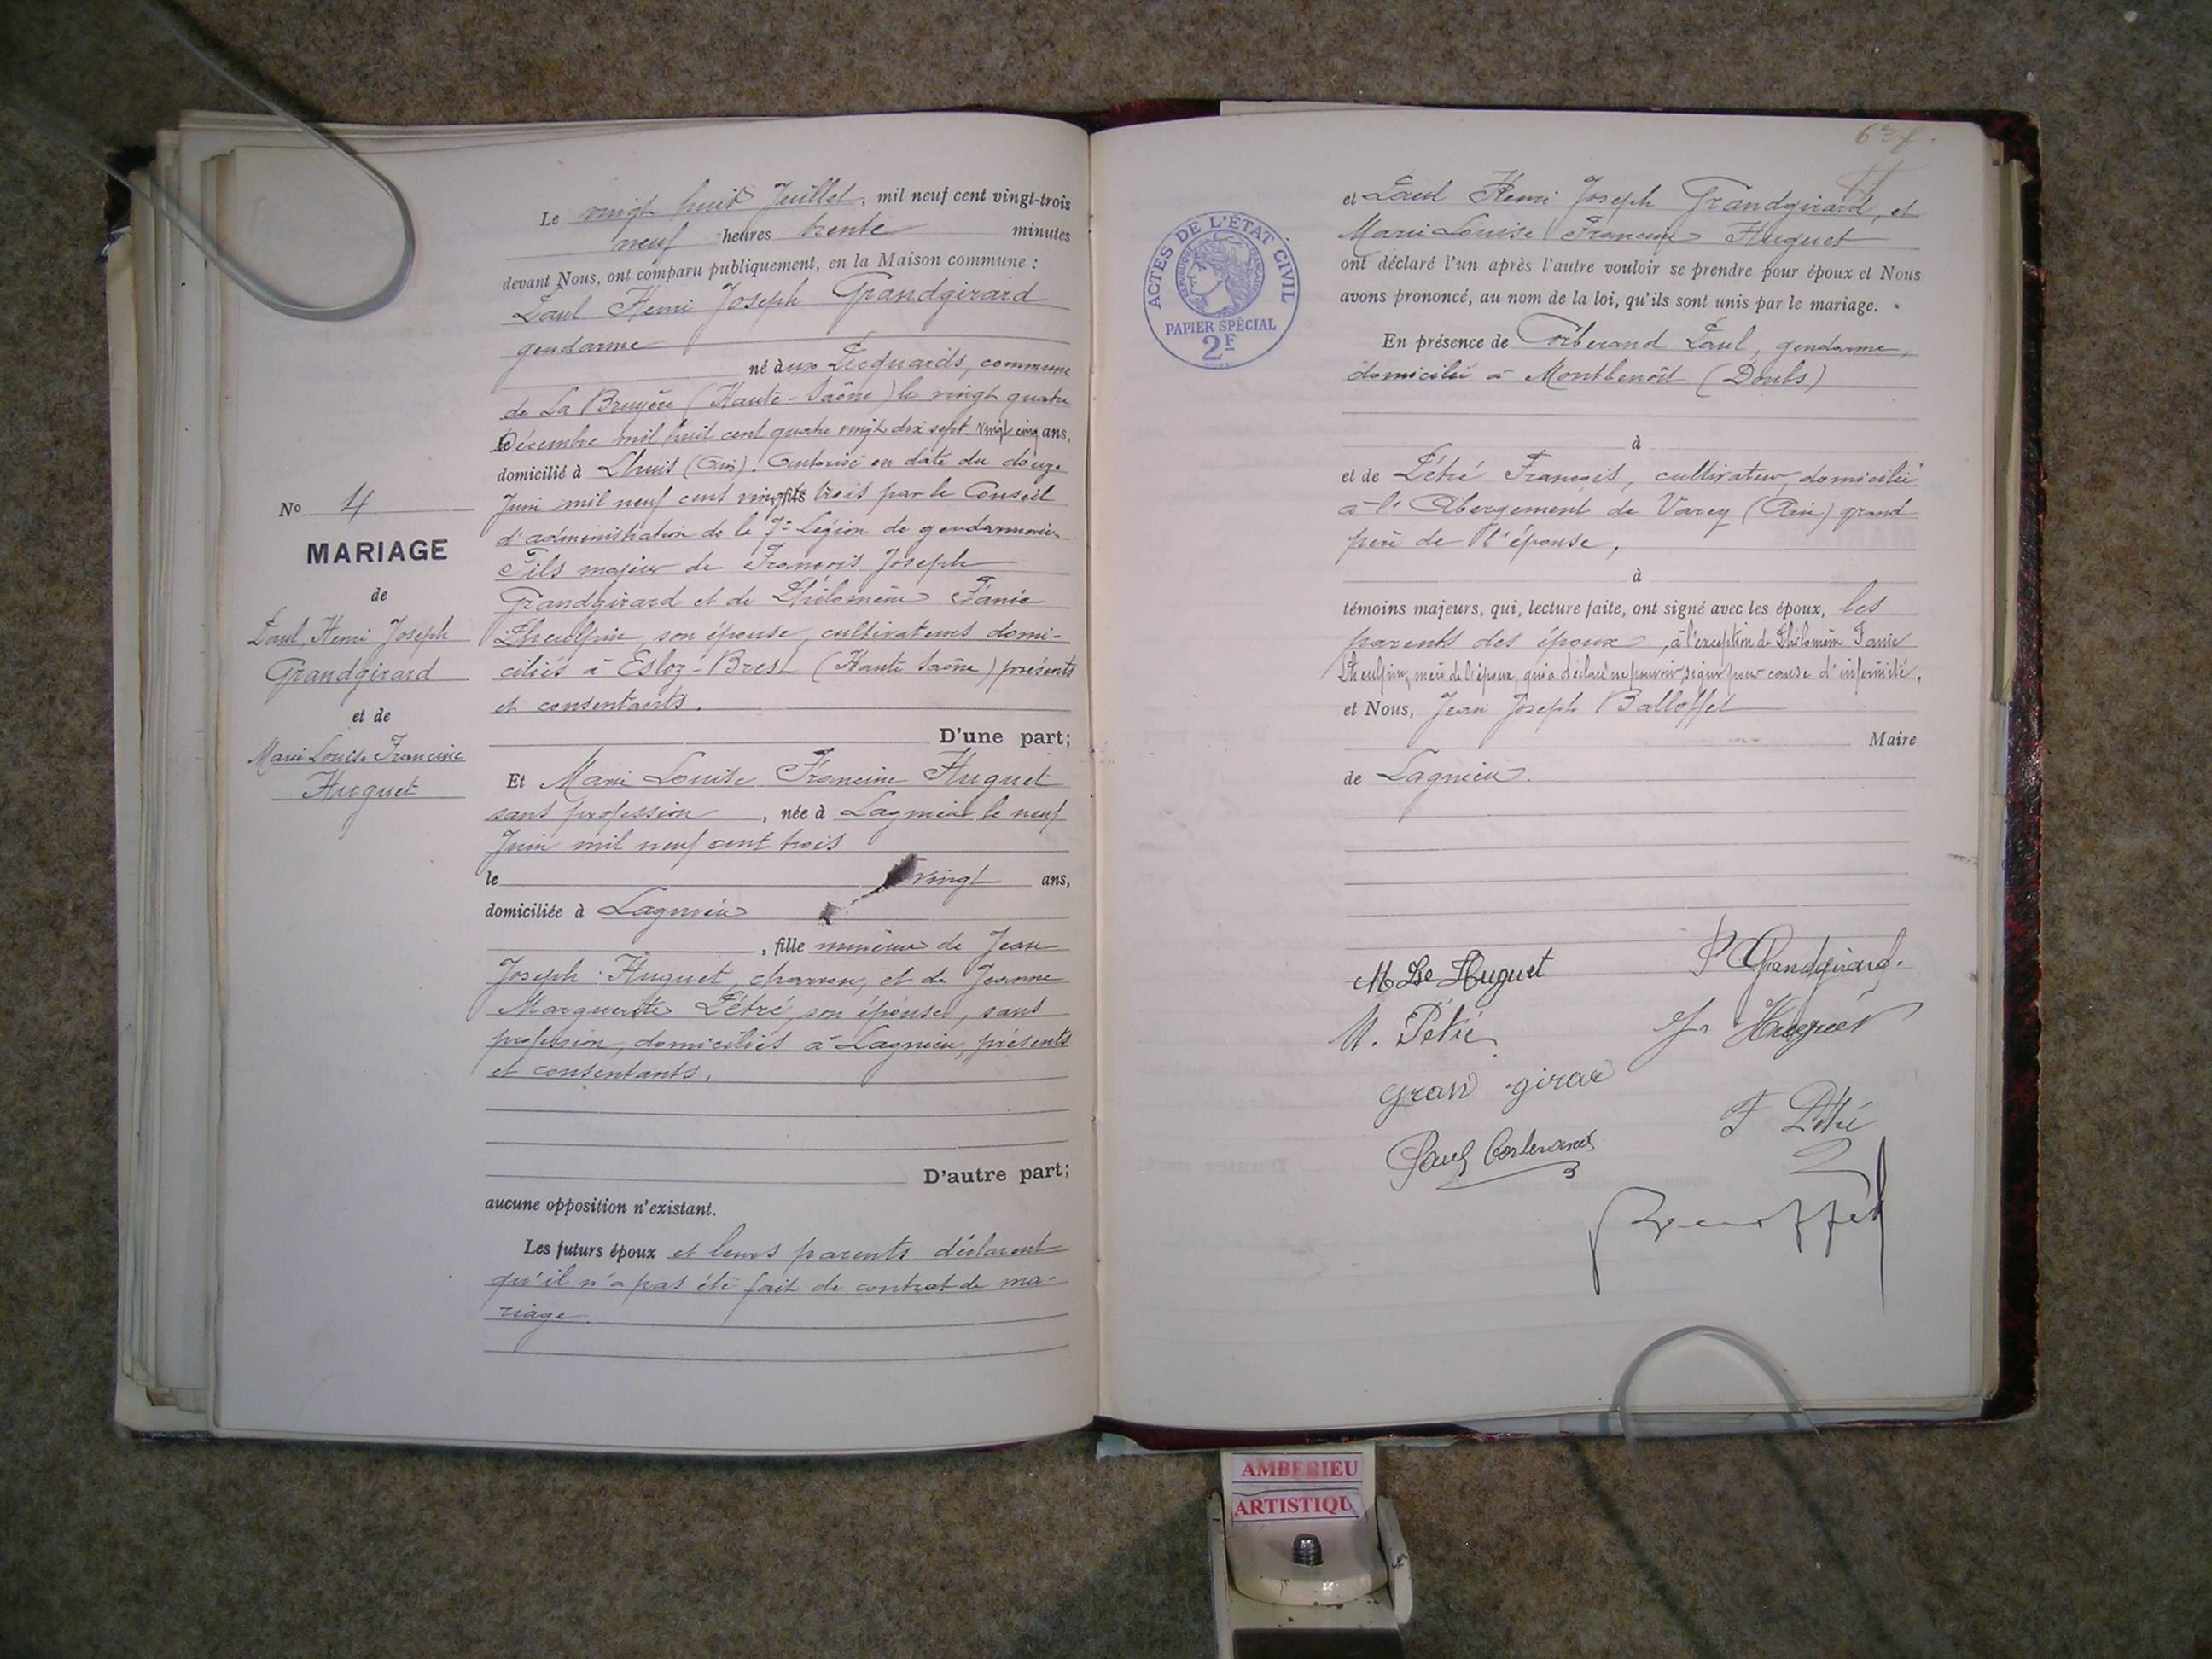 Le vingt huit Juillet, mil neuf cent vingt-trois
neuf heures trente minutes
devant Nous, ont comparu publiquement, en la Maison commune :
Paul Henri Joseph Grandgirard
gendarme
né aux Fecquards, commune
de La Bruyère (Haute-Saône) le vingt quatre
Décembre mil huit cent quatre vingt dix sept vingt cinq ans,
domicilié à Lhuis (Ain). Autorisé en date du douze
Juin mil neuf cent vingt trois par le Conseil
d'administration de la 7e Légion de gendarmerie
Fils majeur de François Joseph
Grandgirard et de Philomène Fanie
Dheulpin, son épouse, cultivateurs domi-
ciliés à Esloz-Brest (Haute Saône) présents
et consentants.
D'une part;
No 4
MARIAGE
de
Paul Henri Joseph
Grandgirard
et de
Marie Louise Francine
Huguet
Et Marie Louise Francine Huguet
sans profession, née à Lagnieu le neuf
Juin mil neuf cent trois
le vingt ans,
domiciliée à Lagnieu
, fille mineure de Jean
Joseph Huguet, charron, et de Jeanne
Marguerite Pétré, son épouse, sans
profession, domiciliés à Lagnieu, présents
et consentants.
D'autre part;
aucune opposition n'existant.
Les futurs époux et leurs parents déclarent
qu'il n'a pas été fait de contrat de ma-
riage.
et Paul Henri Joseph Grandgirard, et
Marie Louise Francine Huguet
ont déclaré l'un après l'autre vouloir se prendre pour époux et Nous
avons prononcé, au nom de la loi, qu'ils sont unis par le mariage.
En présence de Corberand Paul, gendarme,
domicilié à Montbenoît (Doubs)
à
et de Pétré François, cultivateur, domicilié
à l'Abergement de Varey (Ain) grand
père de l'épouse,
à
témoins majeurs, qui, lecture faite, ont signé avec les époux, les
parents des époux, à l'exception de Philomène Fanie
Dheulpin, mère de l'époux, qui a déclaré ne pouvoir signer pour cause d'infirmité,
et Nous, Jean Joseph Balloffet
Maire
de Lagnieu.
M Lse Huguet
P Grandgirard.
M. Pétré
Huguet
Gran girar
F Pétré
Paul Corberand
ACTES DE L'ÉTAT CIVIL
RÉPUBLIQUE FRANÇAISE
PAPIER SPÉCIAL
2F
AMBERIEU
ARTISTIQU